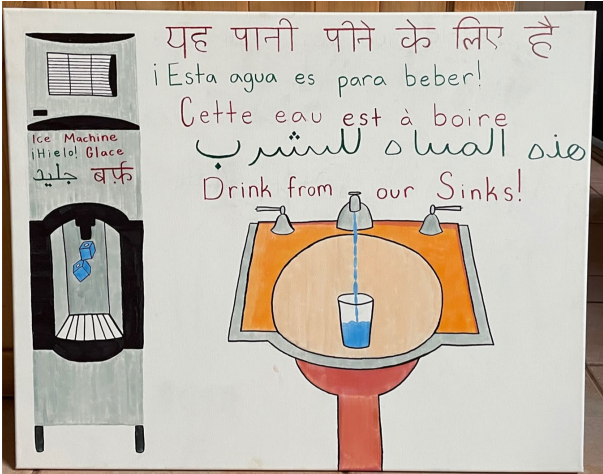 यह पानी पीने के लिए है
¡Esta agua es para beber!
Cette eau est à boire
هذه المياه للشرب
Drink from our Sinks!
Ice Machine
¡Hielo! Glace
جليد बर्फ़